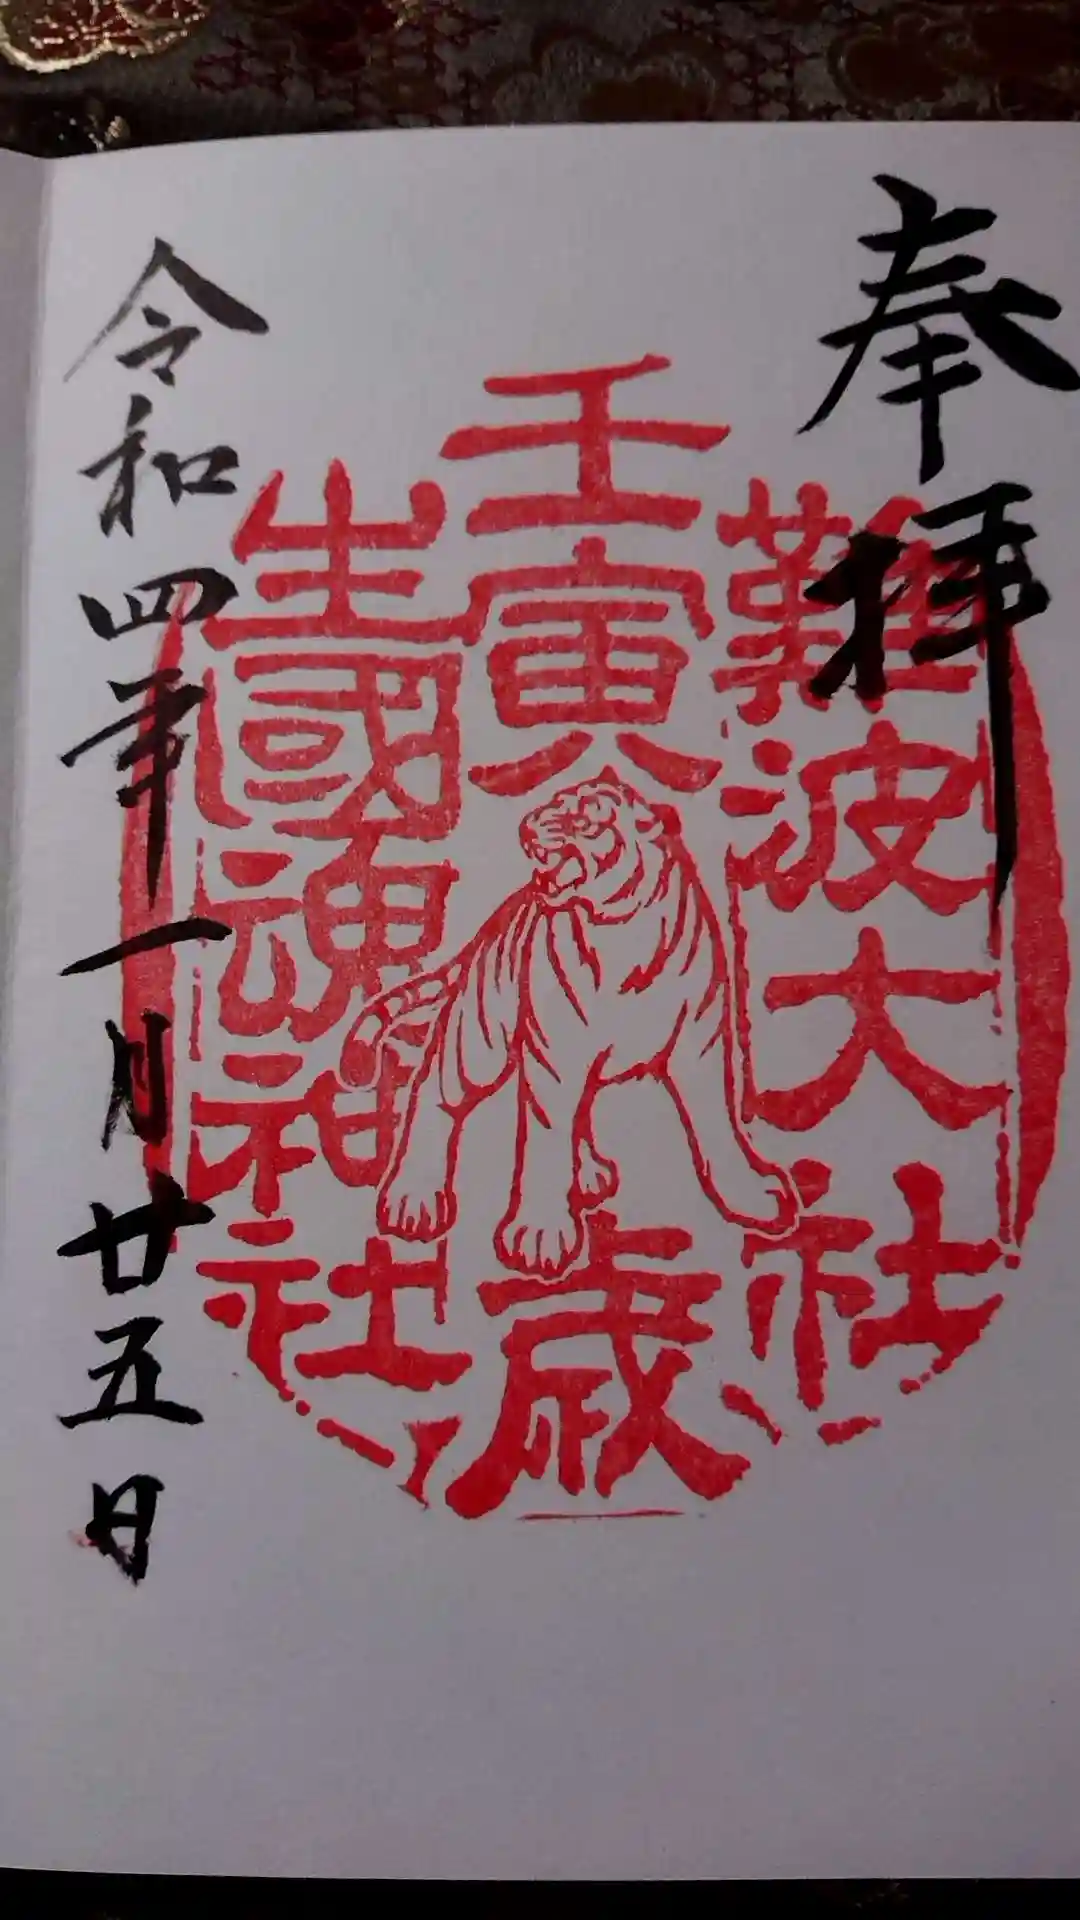 奉拝
難波大社
壬寅歳
生國魂神社
令和四年一月廿五日